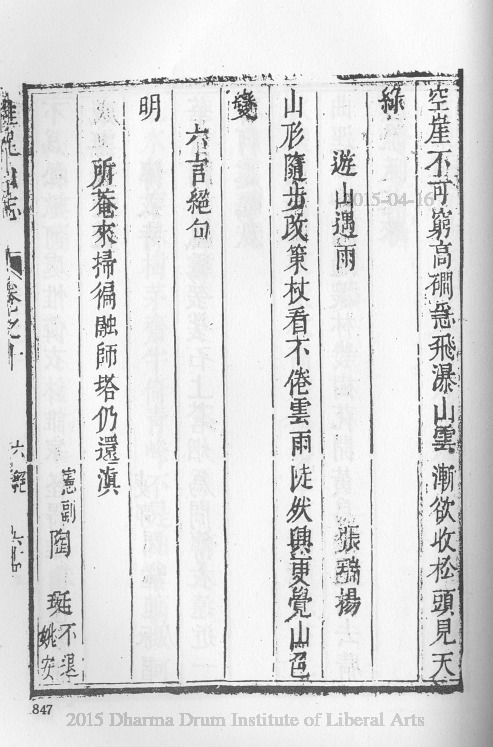 空崖不可窮高磵急飛瀑山雲漸欲收松頭見天
綠
遊山遇雨
張瑞揚
山形隨步改策杖看不倦雲雨陡然興更覺山色
變
六言絕句
明
所菴來掃徧融師塔仍還滇
憲副陶珽不退姚安
山志
卷之十
847
2015-04-16
2015 Dharma Drum Institute of Liberal Arts